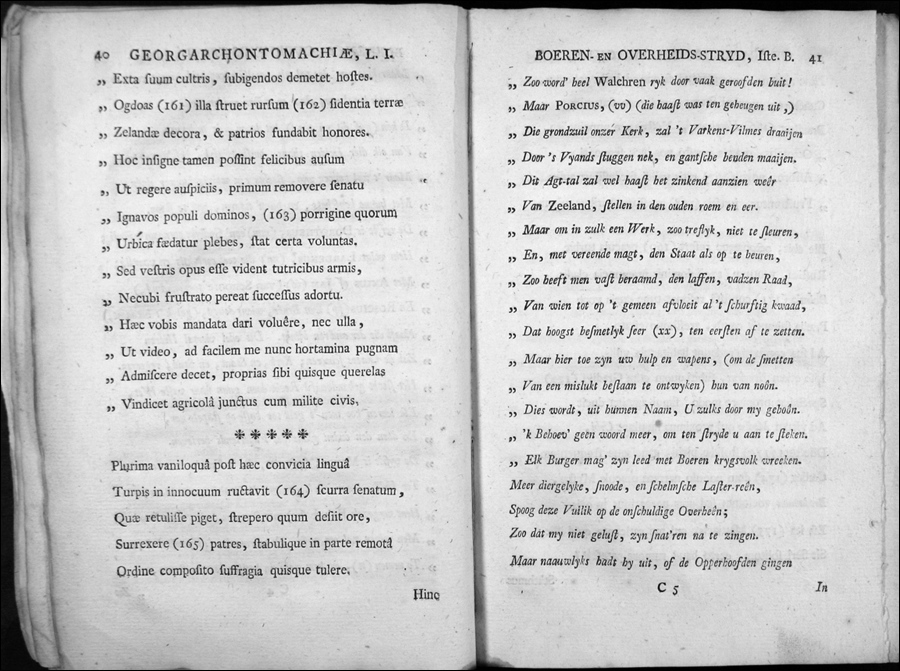 40 GEORGARCHONTOMACHIÆ, L. I.
„ Exta ſuum cultris, ſubigendos demetet hoſtes.
„ Ogdoas (161) illa ſtruet rurſum (162) ſidentia terræ
„ Zelandæ decora, & patrios fundabit honores.
„ Hoc inſigne tamen poſſint felicibus auſum
„ Ut regere auſpiciis, primum removere ſenatu
„ Ignavos populi dominos, (163) porrigine quorum
„ Urbica fædatur plebes, ſtat certa voluntas.
„ Sed veſtris opus eſſe vident tutricibus armis,
„ Necubi fruſtrato pereat ſucceſſus adortu.
„ Hæc vobis mandata dari voluêre, nec ulla,
„ Ut video, ad facilem me nunc hortamina pugnam
„ Admiſcere decet, proprias ſibi quisque querelas
„ Vindicet agricolâ junctus cum milite civis.
❉ ❉ ❉ ❉ ❉
Plurima vaniloquâ poſt hæc convicia linguâ
Turpis in innocuum ructavit (164) ſcurra ſenatum,
Quæ retuliſſe piget, ſtrepero quum deſiit ore,
Surrexere (165) patres, ſtabulique in parte remotâ
Ordine compoſito ſuffragia quisque tulere.
Hinc
BOEREN- EN OVERHEIDS-STRYD, Iſte. B. 41
„ Zoo word' heel Walchren ryk door vaak geroofden buit!
„ Maar PORCIUS, (vv) (die haaſt was ten geheugen uit,)
„ Die grondzuil onzer Kerk, zal 't Varkens-Vilmes draaijen
„ Door 's Vyands ſtuggen nek, en gantſche benden maaijen.
„ Dit Agt-tal zal wel haaſt het zinkend aanzien weêr
„ Van Zeeland, ſtellen in den ouden roem en eer.
„ Maar om in zulk een Werk, zoo treflyk, niet te ſleuren,
„ En, met vereende magt, den Staat als op te beuren,
„ Zoo heeft men vaſt beraamd, den laffen, vadzen Raad,
„ Van wien tot op 't gemeen afvloeit al 't ſchurftig kwaad,
„ Dat hoogst beſmetlyk ſeer (xx), ten eerſten af te zetten.
„ Maar hier toe zyn uw hulp en wapens, (om de ſmetten
„ Van een mislukt beſtaan te ontwyken) hun van noôn.
„ Dies wordt, uit hunnen Naam, U zulks door my geboôn.
„ 'k Behoev' geên woord meer, om ten ſtryde u aan te ſteken.
„ Elk Burger mag' zyn leed met Boeren krygsvolk wreeken.
Meer diergelyke, ſnoode, en ſchelmſche Laſter-reên,
Spoog deze Vuilik op de onſchuldige Overheên;
Zoo dat my niet geluſt, zyn ſnat'ren na te zingen.
Maar naauwlyks hadt hy uit, of de Opperhoofden gingen
C 5 In